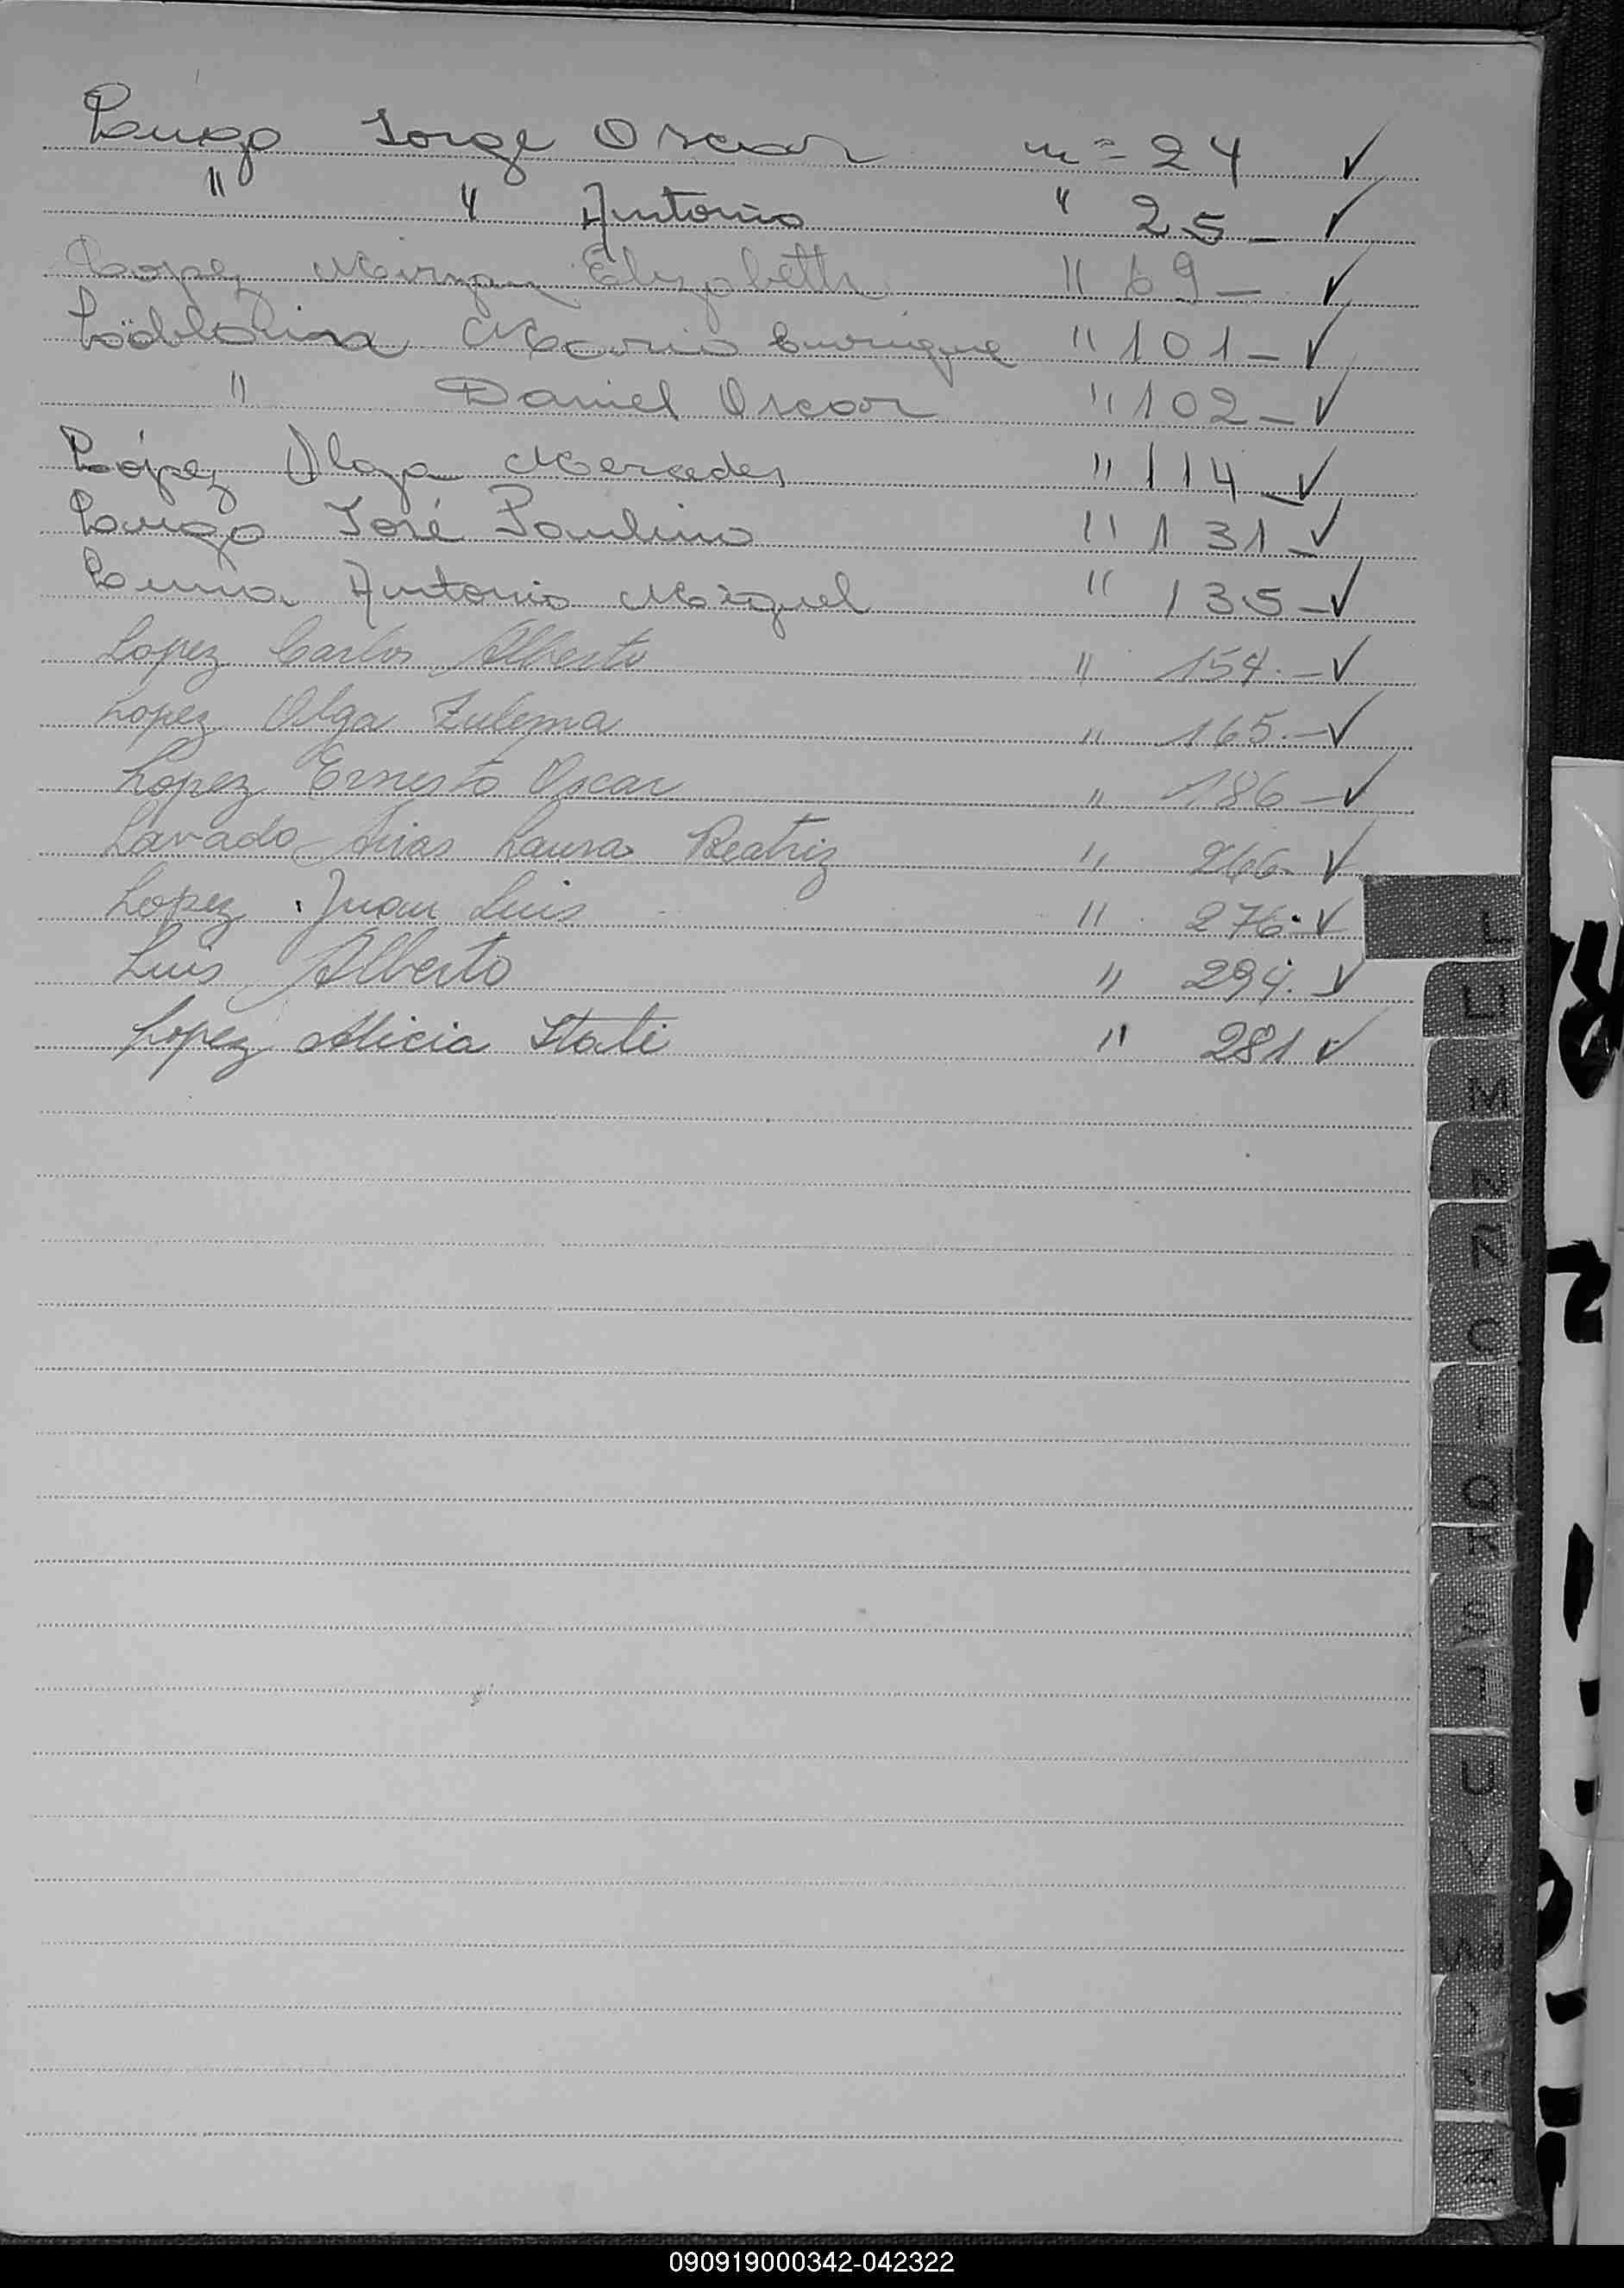 Lugo Jorge Oscar nº 24 ✓
" " Antonio " 25 – ✓
Lopez Miryan Elizabeth " 69 – ✓
Mario Enrique " 101 – ✓
" Daniel Oscar " 102 – ✓
López Olga Mercedes " 114 – ✓
Lugo José Paulino " 131 – ✓
Luna Antonio Miguel " 135 – ✓
Lopez Carlos Alberto " 154. – ✓
Lopez Olga Zulema " 165. – ✓
Lopez Ernesto Oscar " 186 – ✓
Lavado Arias Laura Beatriz " 266 – ✓
Lopez Juan Luis " 276 – ✓
Luis Alberto " 294. ✓
Lopez Alicia Itati " 281 ✓
L
LL
M
N
Ñ
O
Q
R
S
T
U
V
W
Z
090919000342-042322